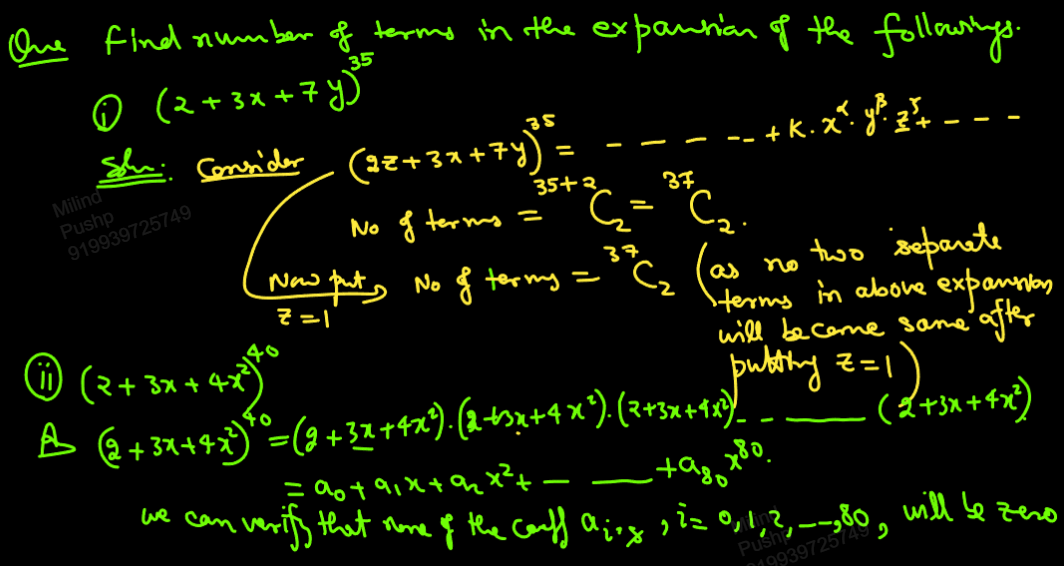 Que Find number of terms in the expansion of the followings.
(i) (2 + 3x + 7y)^35
Soln: Consider (2z + 3x + 7y)^35 = - - - - - - + K. x^α. y^β. z^γ + - - -
No of terms = ^35+2C_2 = ^37C_2.
Now put z = 1 → No of terms = ^37C_2 (as no two separate
terms in above expansion
will become same after
putting z = 1)
(ii) (2 + 3x + 4x^2)^40
A (2 + 3x + 4x^2)^40 = (2 + 3x + 4x^2).(2 + 3x + 4x^2).(2 + 3x + 4x^2) - - —— (2 + 3x + 4x^2)
= a_0 + a_1x + a_2x^2 + - —— + a_80 x^80.
we can verify that none of the coeff a_i,s, i = 0, 1, 2, ---, 80, will be zero
Milind
Pushp
919939725749